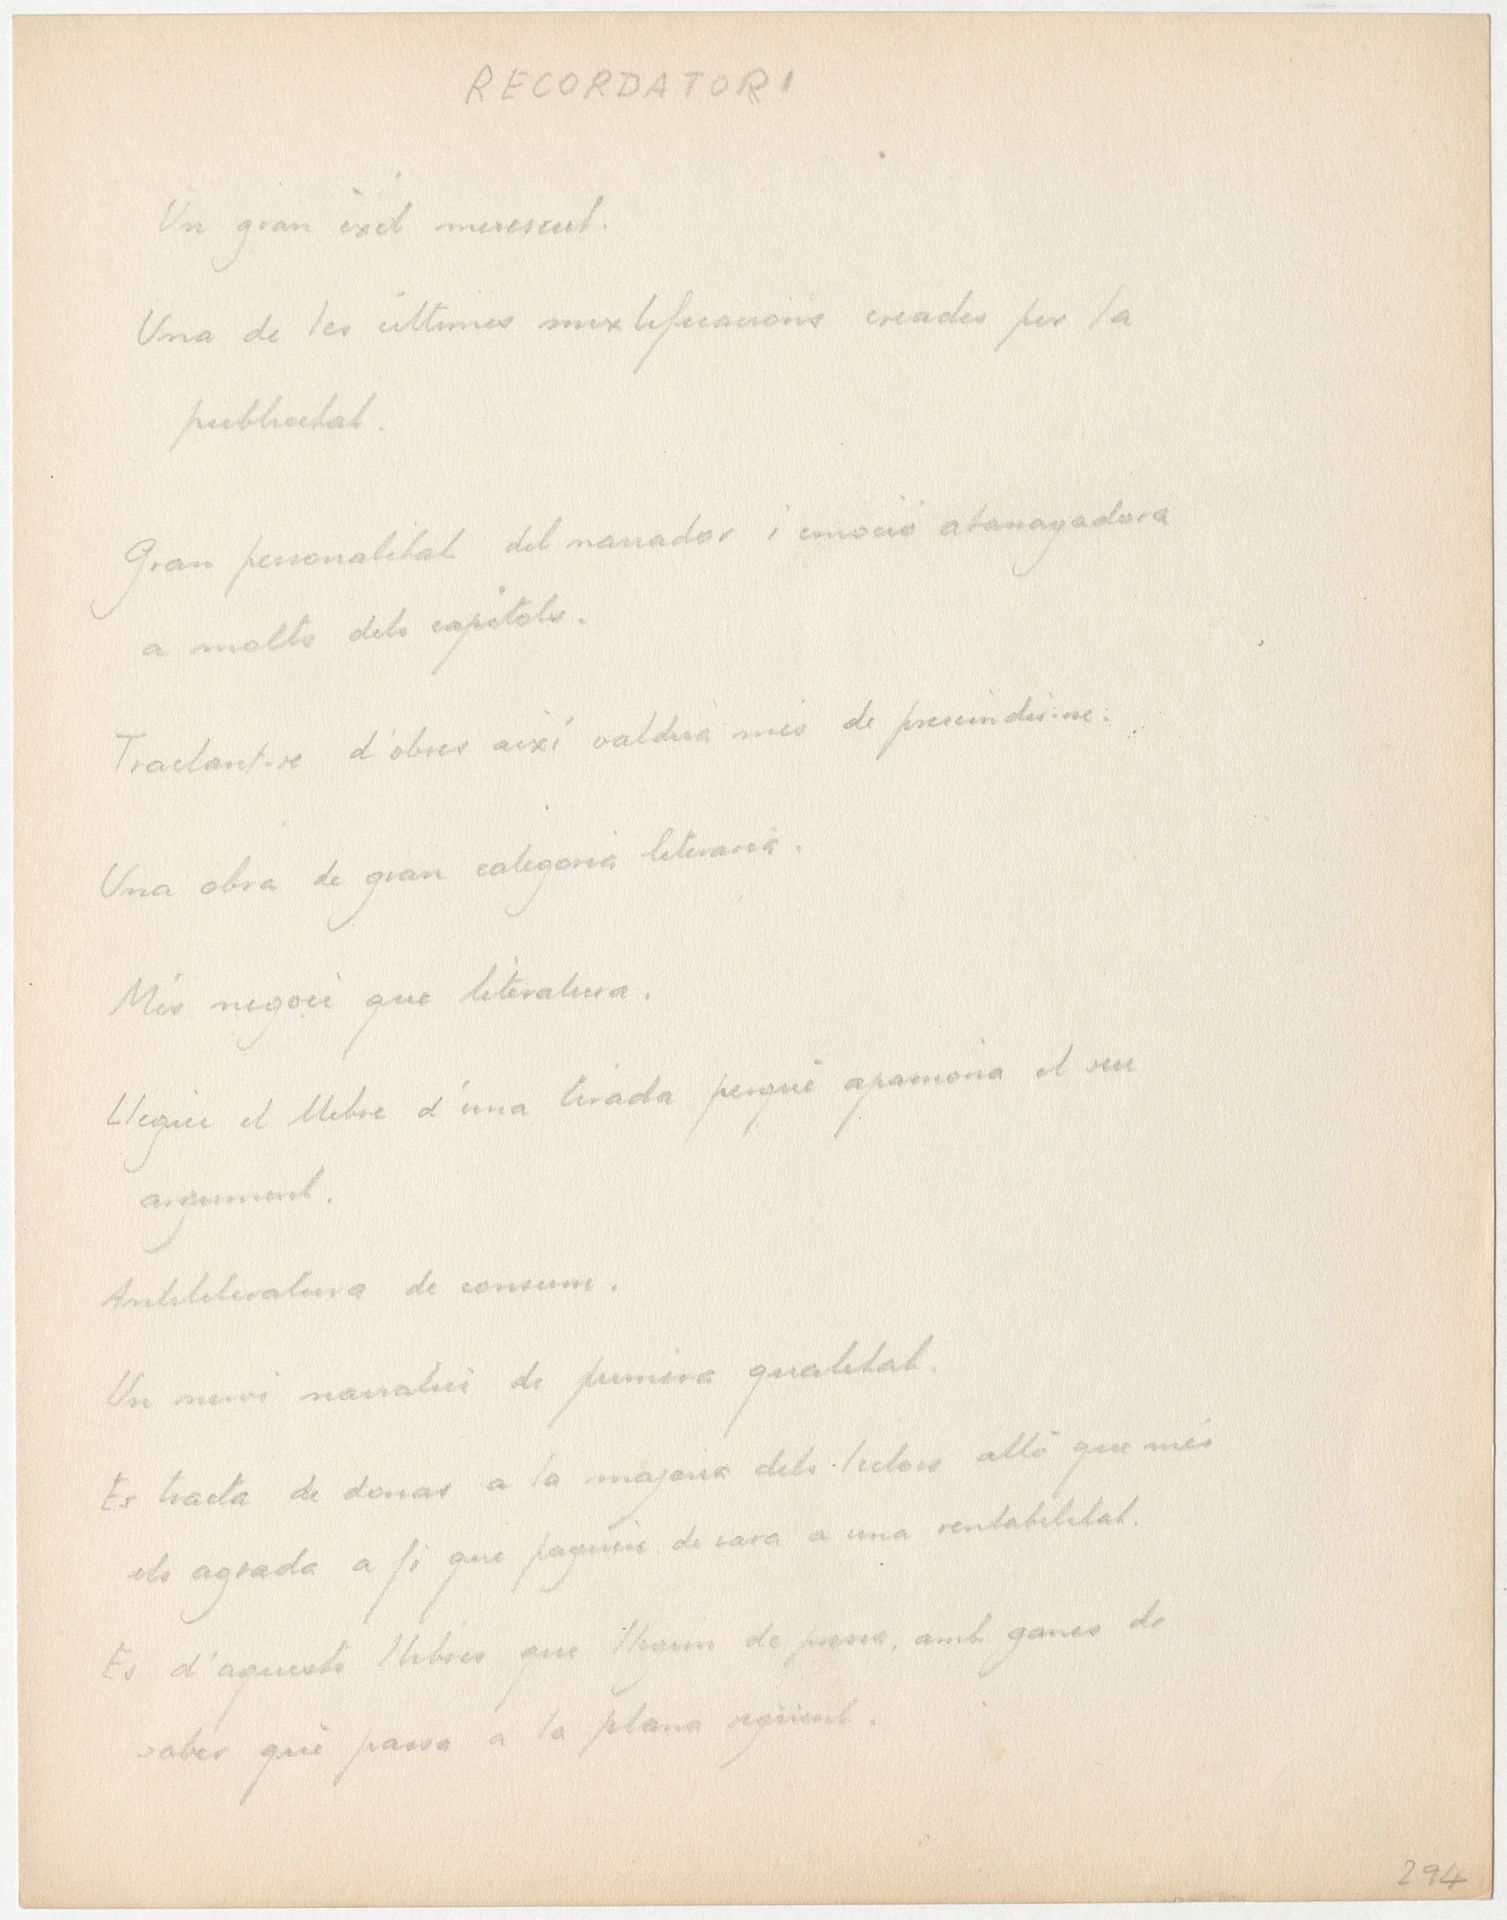 RECORDATORI
Un gran èxit merescut.
Una de les últimes mixtificacions creades per la
publicitat.
Gran personalitat del narrador i emoció atanayadora
a molts dels capítols.
Tractant-se d'obres així valdria més de prescindir-ne.
Una obra de gran categoria literaria.
Més negoci que literatura.
Llegiu el llibre d'una tirada perquè apassiona el seu
argument.
Antiliteratura de consum.
Un nervi narratiu de primera qualitat.
Es tracta de donar a la majoria dels lectors allò que més
els agrada a fi que paguin de cara a una rentabilitat.
Es d'aquests llibres que llegim de pressa, amb ganes de
saber què passa a la plana següent.
294